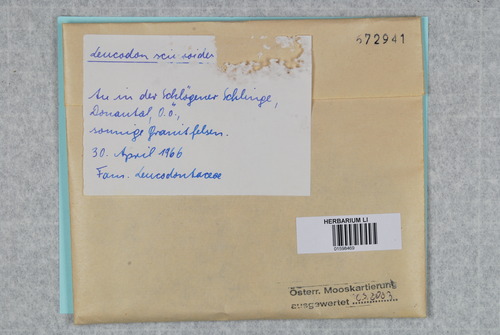 672941
Leucodon sciuroides
Au in der Schlögener Schlinge,
Donautal, O.Ö.,
sonnige Granitfelsen.
30. April 1966
Fam. Leucodontaceae
HERBARIUM LI
Österr. Mooskartierung
ausgewertet